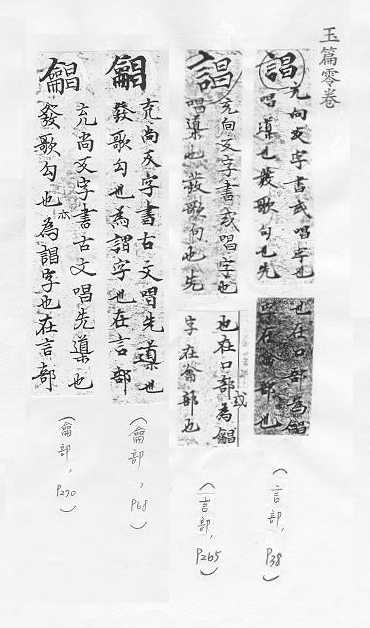 玉篇零卷
誯
充向反字書或唱字也
唱導也發歌句也先
也在口部為䶴
字在龠部也
(言部, P38)
誯
充向反字書或唱字也
唱導也發歌句也先
也在口部或為䶴
字在龠部也
(言部, P265)
䶴
充尚反字書古文唱先導也
發歌勾也為誯字也在言部
(龠部, P68)
䶴
充尚反字書古文唱先導也
發歌勾也亦為誯字也在言部
(龠部, P270)